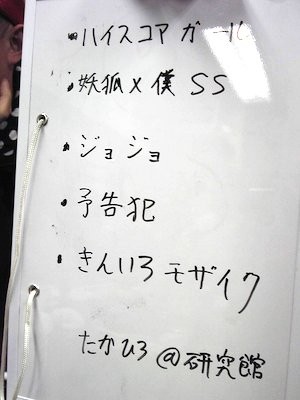 ・ハイスコアガール
・妖狐×僕SS
・ジョジョ
・予告犯
・きんいろモザイク
たかひろ@研究館